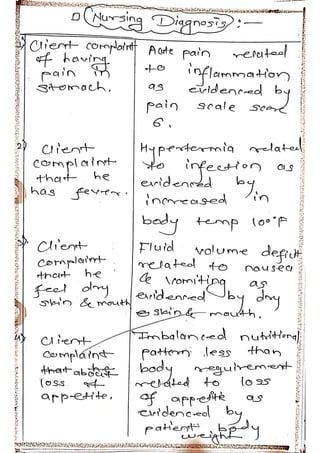 Nursing Diagnosis :-
1) Client complaint of having pain in stomach.
Acute pain related
to inflammation
as evidenced by
pain scale score
6.
2) Client
complaint
that he
has fever.
Hypertermia related
to infection as
evidenced by
increased in
body temp 100°F
3) Client
complaint
that he
feel dry
skin & mouth
Fluid volume deficit
related to nausea
& vomiting as
evidenced by dry
skin & mouth.
4) Client
complaint
that about
loss of
appetite.
Imbalanced nutritional
pattern less than
body requirement
related to loss
of appetite as
evidenced by
patient body
weight